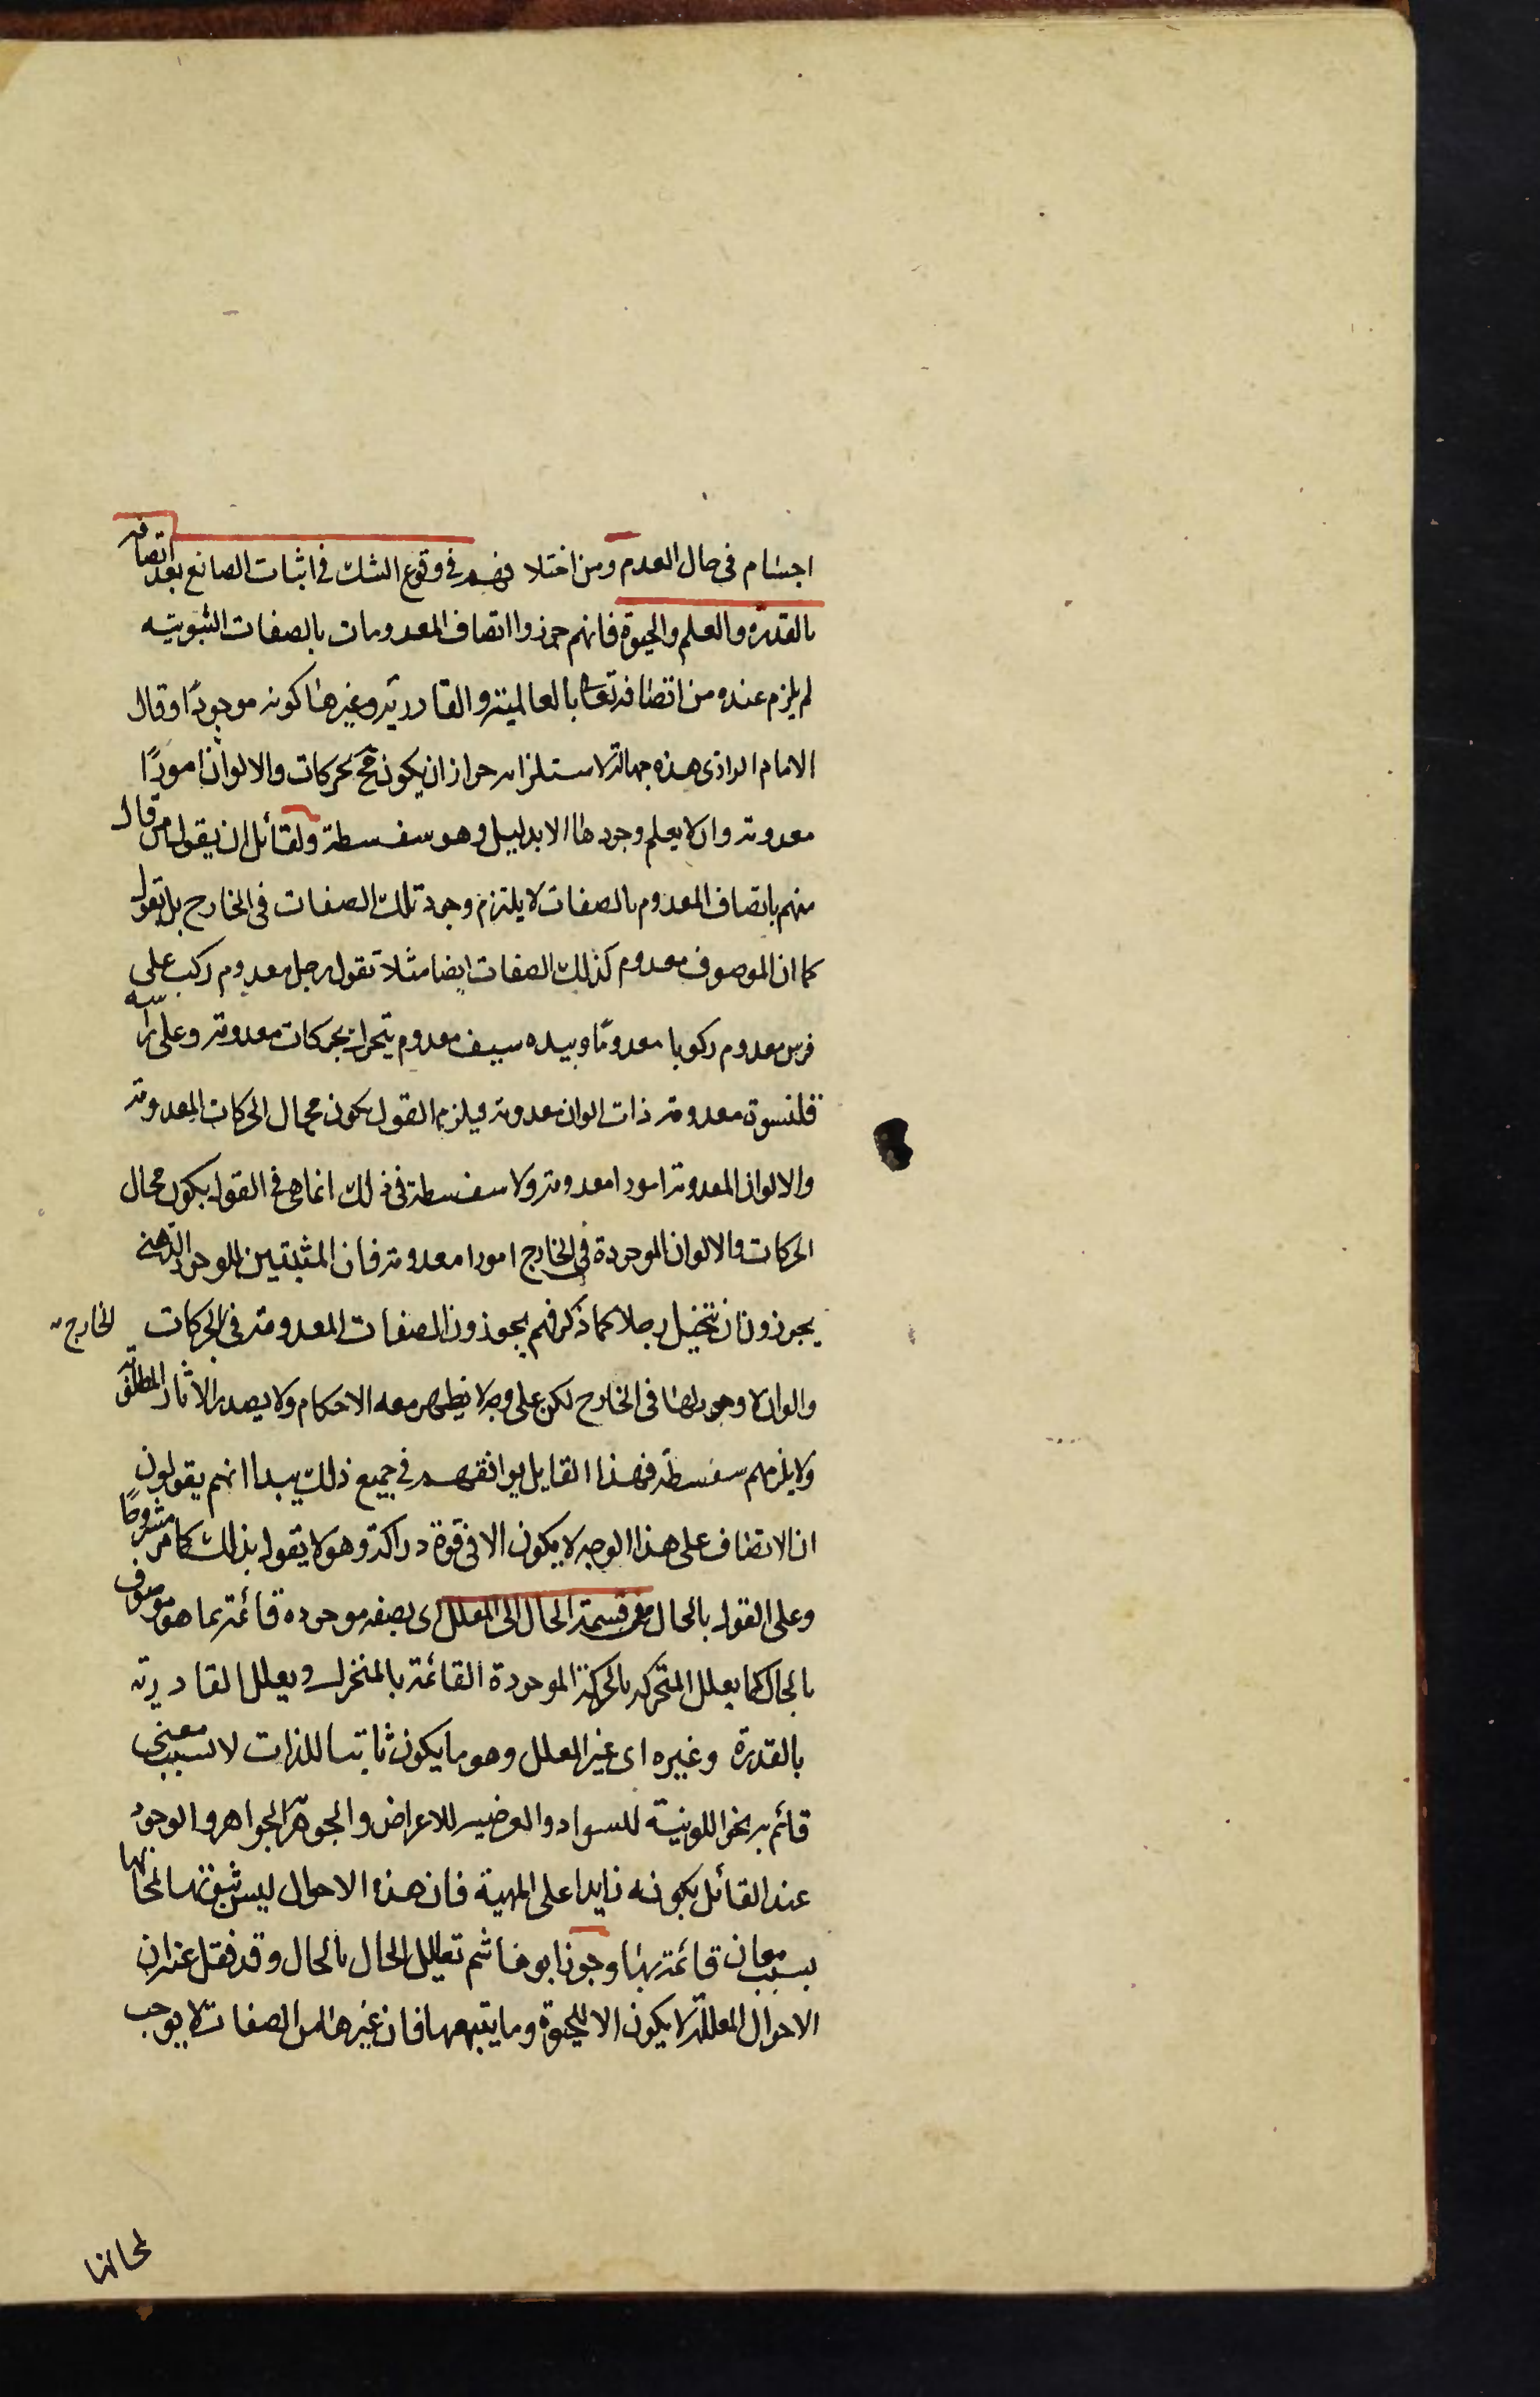 اجسام فى حال العدم ومن اختلافهم فى وقوع الشك فى اثبات الصانع بعد اتصافه
بالقدرة والعلم والحيوة فانهم جوزوا اتصاف المعدومات بالصفات الثبوتيه
لم يلزم عنده من اتصافه تعا بالعالمية والقادرية وغيرها كونه موجودًا وقال
الامام الرازى هذه جهالة لاستلزامه جواز ان يكون مح حركات والالوان امورًا
معدومة وان لا يعلم وجودها الا بدليل وهو سفسطة ولقائل ان يقول من قال
منهم باتصاف المعدوم بالصفات لا يلتزم وجود تلك الصفات فى الخارج بل يقول
كما ان الموصوف معدوم كذلك الصفات ايضا مثلا تقول رجل معدوم ركب على
فرس معدوم ركوبا معدومًا وبيده سيف معدوم يتحرك بحركات معدومة وعلى راسه
قلنسوة معدومة ذات الوان معدومة ويلزم القول بكون محال الحركات المعدومة
والالوان المعدومة امورا معدومة ولا سفسطة فى ذلك انما هى فى القول بكون محال
الحركات والالوان الموجودة فى الخارج امورا معدومة فان المثبتين للوجود الذهنى
يجوزون ان نتخيل رجلا كما ذكر فهم يجوزون الصفات المعدومة فى الحركات الخارج
والوان لا وجود لها فى الخارج لكن على وجه لا يظهر معه الاحكام ولا يصدر الاثار المطلقة
ولا يلزمهم سفسطة فهذا القايل يوافقهم فى جميع ذلك بيدا انهم يقولون
ان الاتصاف على هذا الوجه لا يكون الا فى قوة دراكة وهو لا يقول بذلك كما مر مشروحًا
وعلى القول بالحال من قسمة الحال الى المعلل اى بصفه موجوده قائمة بما هو موصوف
بالحال كما يعلل المتحركية بالحركة الموجودة القائمة بالمتحرك ويعلل القادرية
بالقدرة وغيره اى غير المعلل وهو ما يكون ثابتا للذات لا بسبب معنى
قائم به نحو اللونية للسواد والعرضيه للاعراض والجوهرية للجواهر والوجود
عند القائل بكونه زايدا على المهية فان هذه الاحوال ليس ثبوتها لمحالها
بسبب معان قائمة بها وجوز ابو هاشم تعليل الحال بالحال وقد نقل عنه ان
الاحوال المعللة لا يكون الا للحيوة وما يتبعها فان غيرها من الصفات لا يوجب
لمحالها